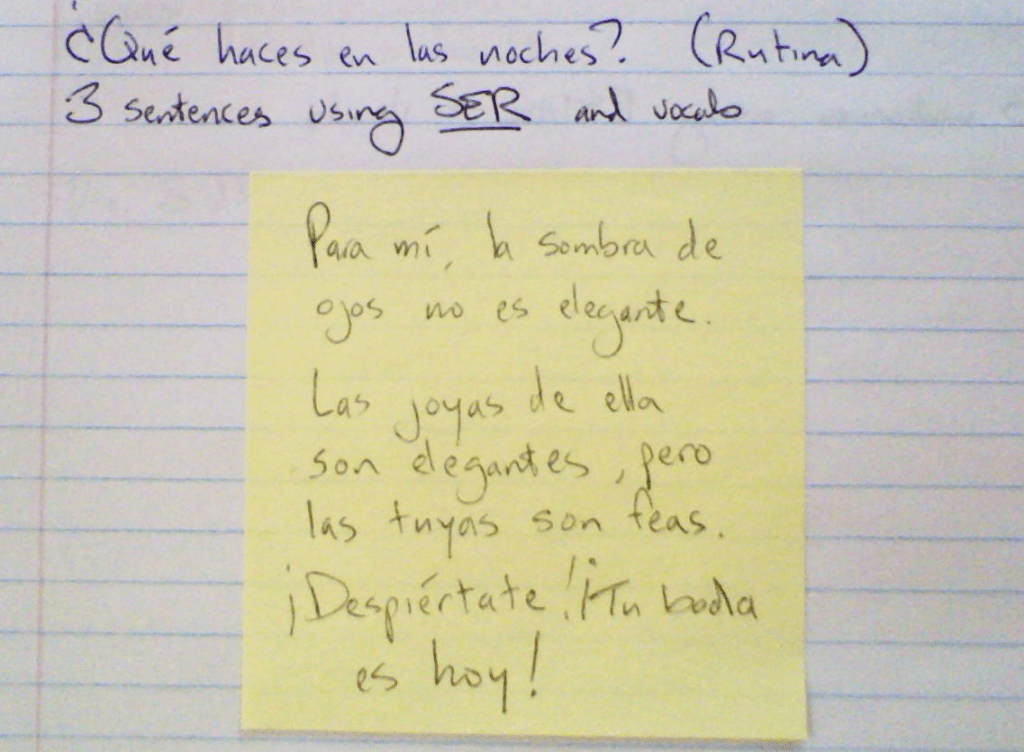 ¿Qué haces en las noches? (Rutina)
3 sentences using SER and vocab
Para mí, la sombra de
ojos no es elegante.
Las joyas de ella
son elegantes, pero
las tuyas son feas.
¡Despiértate! ¡Tu boda
es hoy!